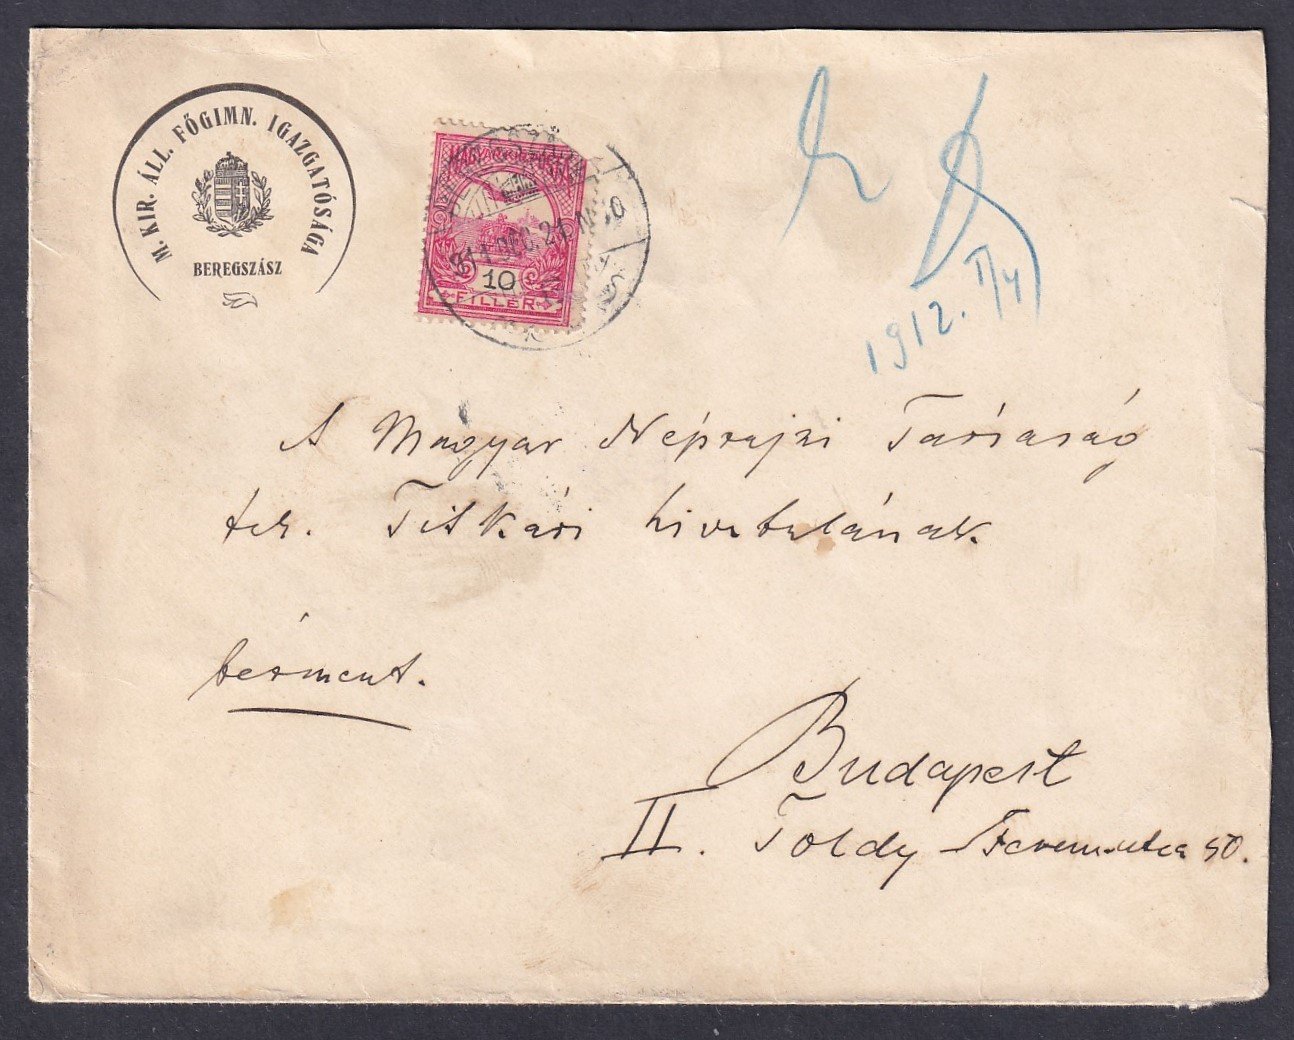 M. KIR. ÁLL. FŐGIMN. IGAZGATÓSÁGA
BEREGSZÁSZ
10
FILLÉR
911 DEC. 21
1912. II/4
A Magyar Néprajzi Társaság
tek. Titkári hivatalának
bérment.
Budapest
II. Toldy Ferenc utca 50.